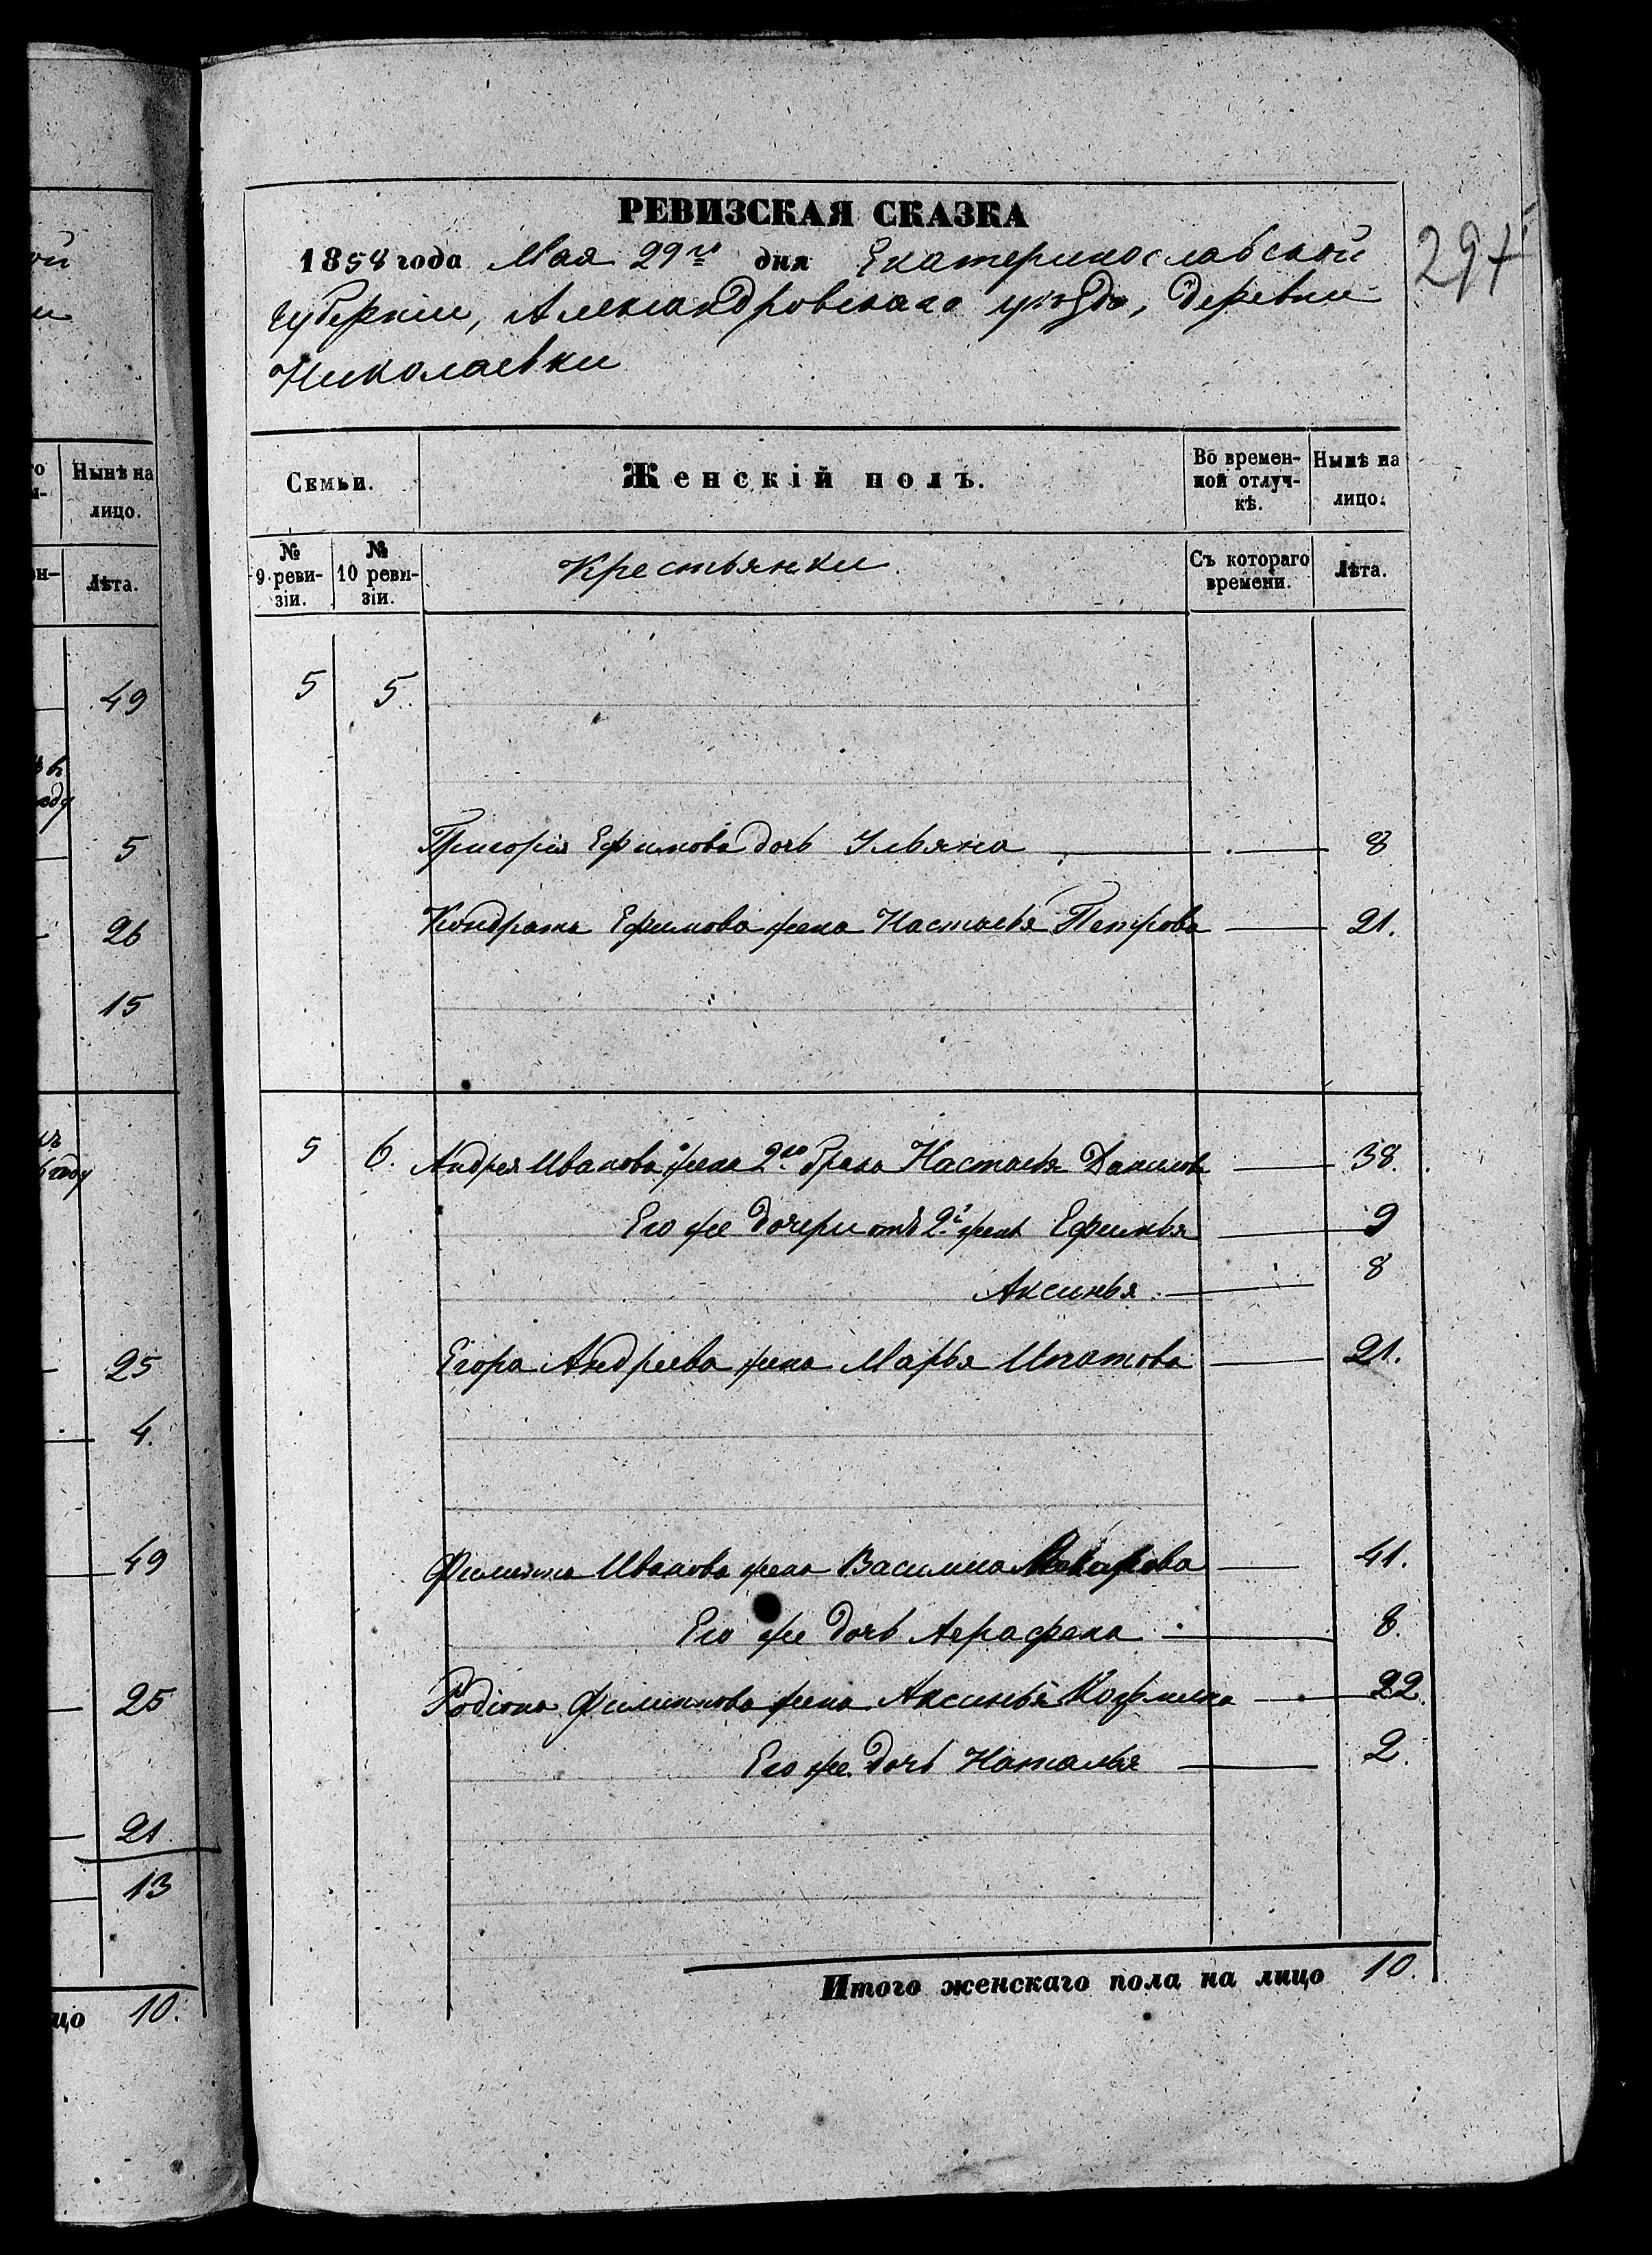 ой
и
го
н-
Нынѣ на
лицо.
ен-
Лѣта.
49
ъ въ
году
5
26
15
году
25
4.
49
25
21
13
цо 10.
РЕВИЗСКАЯ СКАЗКА
297
1858 года Мая 29го дня Екатеринославской
губернiи, Александровскаго уѣзда, деревни
Николаевки
Семьи.
Женскiй полъ.
Во времен-
ной отлуч-
кѣ.
Нынѣ на
лицо.
№
9 реви-
зiи.
№
10 реви-
зiи.
Крестьянки.
Съ котораго
времени.
Лѣта.
5 5.
Григорiя Ефимова дочь Ульяна 8
Кондрата Ефимова жена Настасья Петрова 21.
5 6. Андрея Иванова жена 2го брака Настасья Данилова 38.
Его же дочери отъ 2й жены Ефимья 9
Аксинья 8
Егора Андреева жена Марья Ипатова 21.
Филиппа Иванова жена Василиса Макарова 41.
Его же дочь Аграфена 8.
Родiона Филиппова жена Аксинья Козьмина 22.
Его же дочь Наталья 2.
Итого женскаго пола на лицо 10.